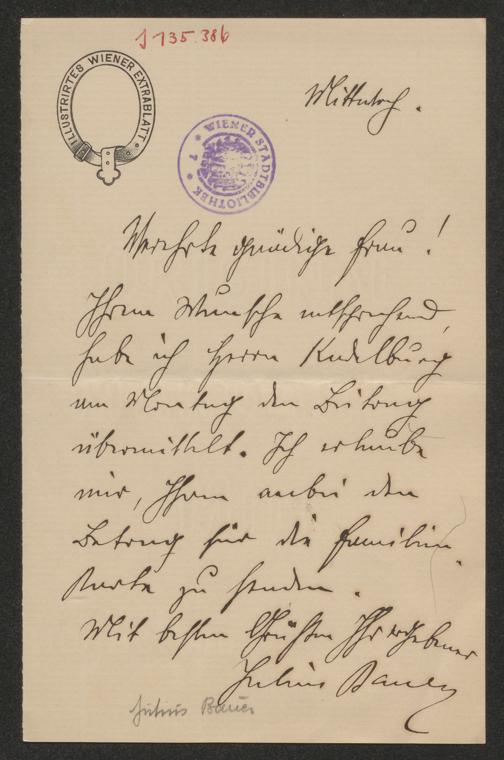 J 135.386
ILLUSTRIRTES WIENER EXTRABLATT.
* WIENER STADTBIBLIOTHEK *
Mittwoch.
Verehrte gnädige Frau!
Ihrem Wunsche entsprechend,
habe ich Herrn Kadelburg
am Montag den Beitrag
übermittelt. Ich erlaube
mir, Ihnen anbei den
Betrag für die Familien
Karte zu senden.
Mit besten Grüßen Ihr ergebener
Julius Bauer
Julius Bauer